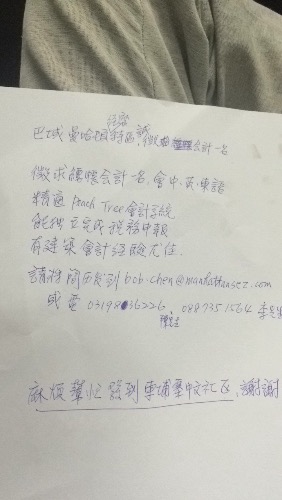 經濟
巴域曼哈頓特區,誠徵會計一名
徵求總帳會計一名,會中、英、柬語
精通 Peach Tree 會計系統
能独立完成稅務申報
有建築會計經驗尤佳
請將简历发到 bob.chen@manhattansez.com
或電 0319836226 , 0887351564 李先生
陳先生
麻煩幫忙發到柬埔寨中文社区,謝謝